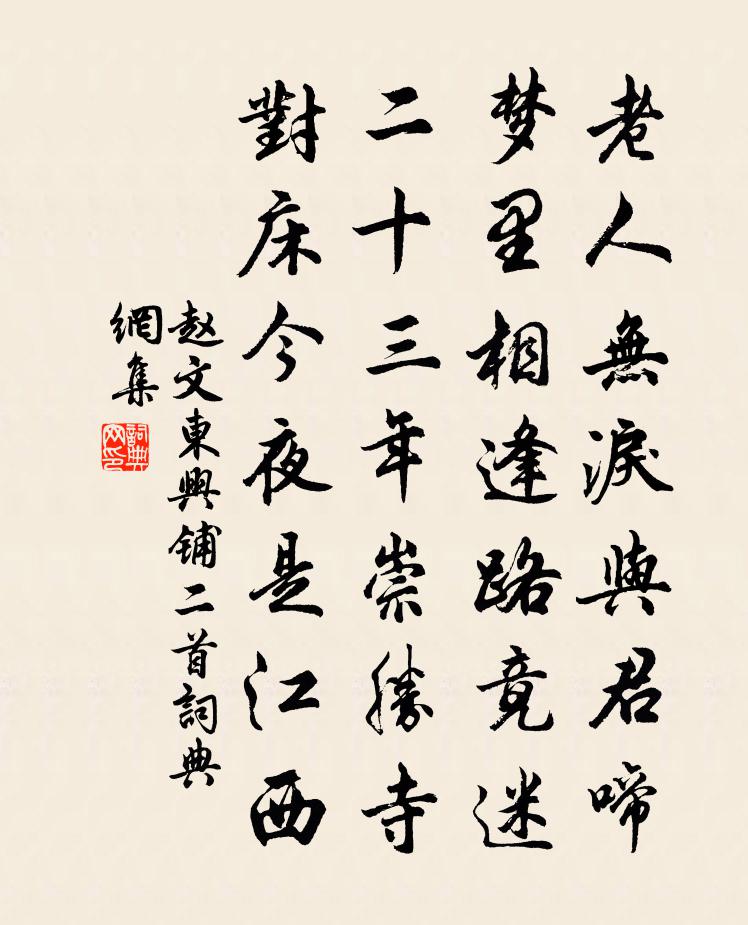 老人無淚與君啼
梦里相逢路竟迷
二十三年崇勝寺
對床今夜是江西
赵文東興铺二首詞典
網集
詞典
网印